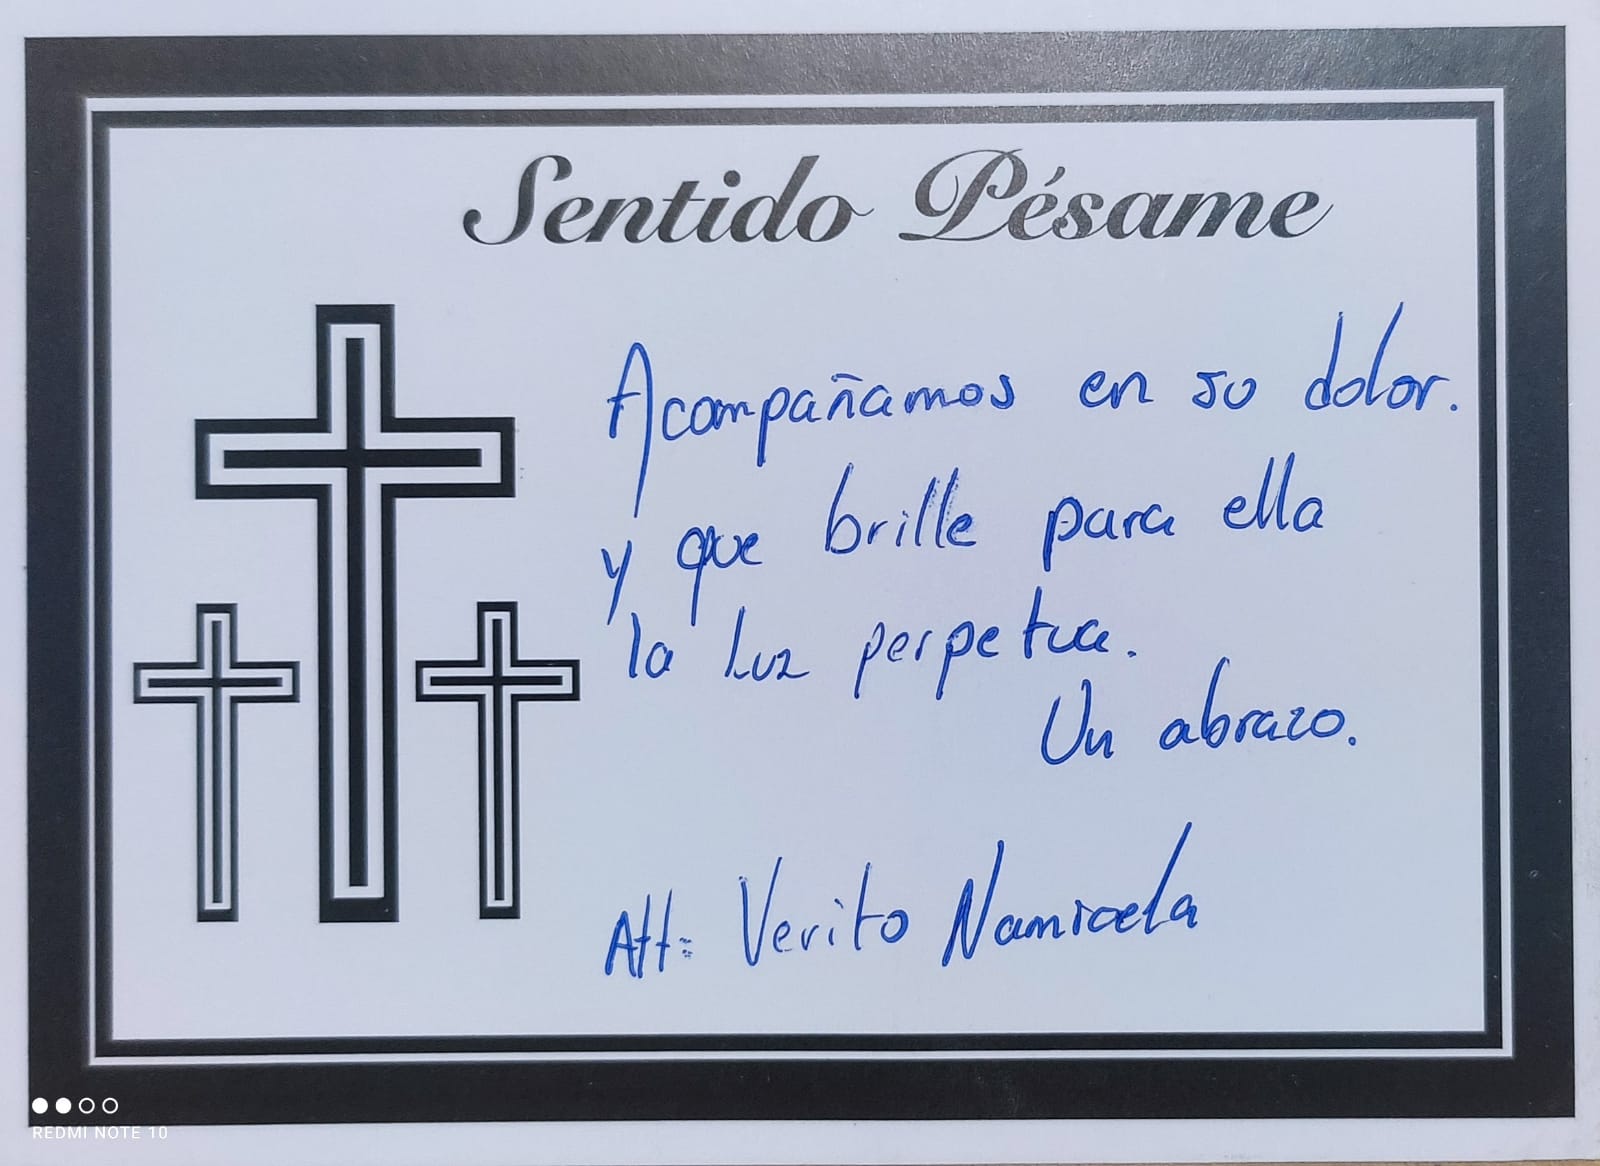 Sentido Pésame
Acompañamos en su dolor.
y que brille para ella
la Luz perpetua.
Un abrazo.
Att: Verito Namicela
REDMI NOTE 10